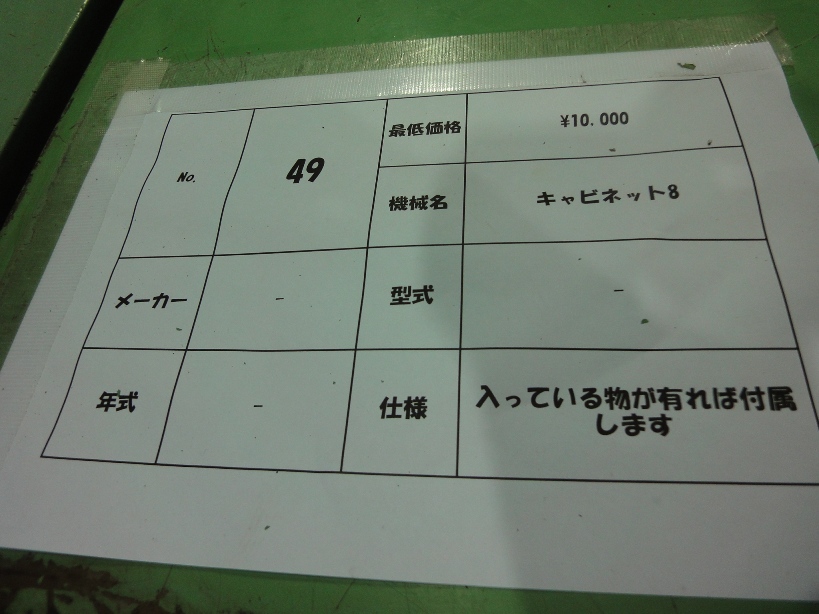 No.
49
最低価格
¥10.000
機械名
キャビネット8
メーカー
–
型式
–
年式
–
仕様
入っている物が有れば付属
します